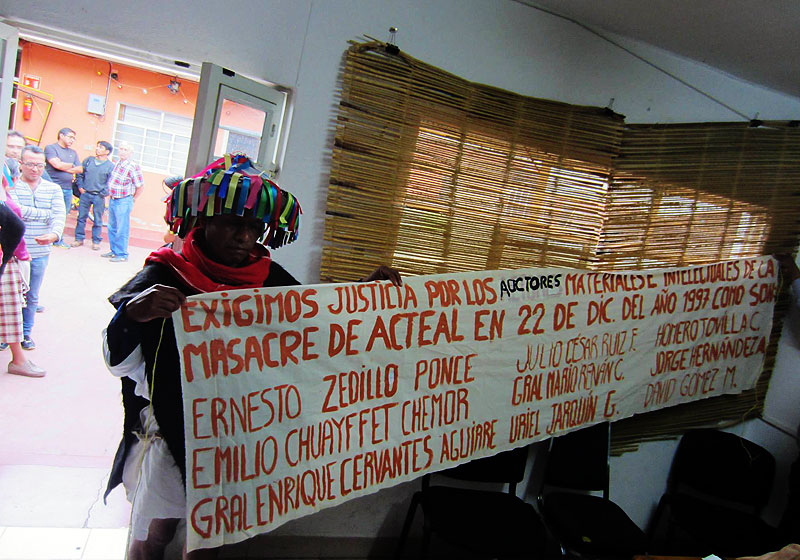 EXIGIMOS JUSTICIA POR LOS AOCTORES MATERIALES E INTELECTUALES DE LA
MASACRE DE ACTEAL EN 22 DE DIC. DEL AÑO 1997 COMO SON:
ERNESTO ZEDILLO PONCE
EMILIO CHUAYFFET CHEMOR
GRAL ENRIQUE CERVANTES AGUIRRE
JULIO CÉSAR RUIZ F.
GRAL MARIO RENAN C.
URIEL JARQUÍN G.
HOMERO TOVILLA C.
JORGE HERNÁNDEZ A.
DAVID GOMEZ M.